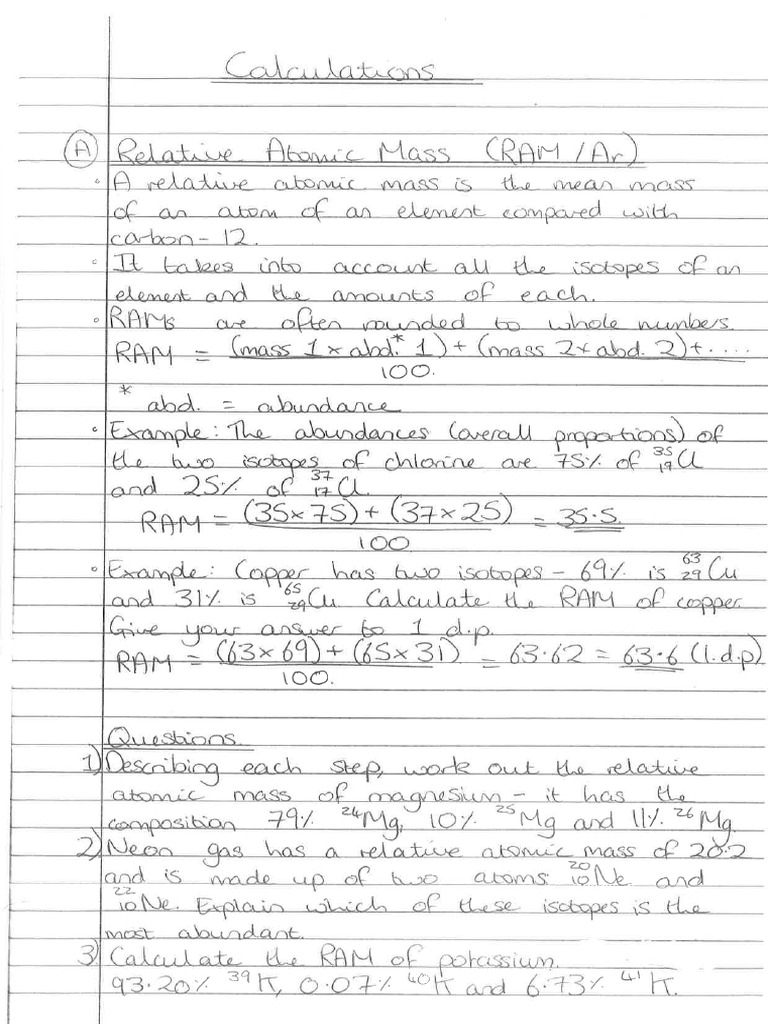 Calculations
(A) Relative Atomic Mass (RAM/Ar)
• A relative atomic mass is the mean mass
of an atom of an element compared with
carbon-12.
• It takes into account all the isotopes of an
element and the amounts of each.
• RAMs are often rounded to whole numbers
RAM = (mass 1 × abd.* 1) + (mass 2 × abd. 2) + ....
100.
* abd. = abundance
• Example: The abundances (overall proportions) of
the two isotopes of chlorine are 75% of ³⁵₁₇Cl
and 25% of ³⁷₁₇Cl.
RAM = (35×75) + (37×25) = 35.5
100
• Example: Copper has two isotopes - 69% is ⁶³₂₉Cu
and 31% is ⁶⁵₂₉Cu. Calculate the RAM of copper.
Give your answer to 1 d.p.
RAM = (63×69) + (65×31) = 63.62 = 63.6 (1.d.p)
100.
Questions
1) Describing each step, work out the relative
atomic mass of magnesium - it has the
composition 79% ²⁴Mg, 10% ²⁵Mg and 11% ²⁶Mg.
2) Neon gas has a relative atomic mass of 20.2
and is made up of two atoms ²⁰₁₀Ne and
²²₁₀Ne. Explain which of these isotopes is the
most abundant.
3) Calculate the RAM of potassium.
93.20% ³⁹K, 0.07% ⁴⁰K and 6.73% ⁴¹K.